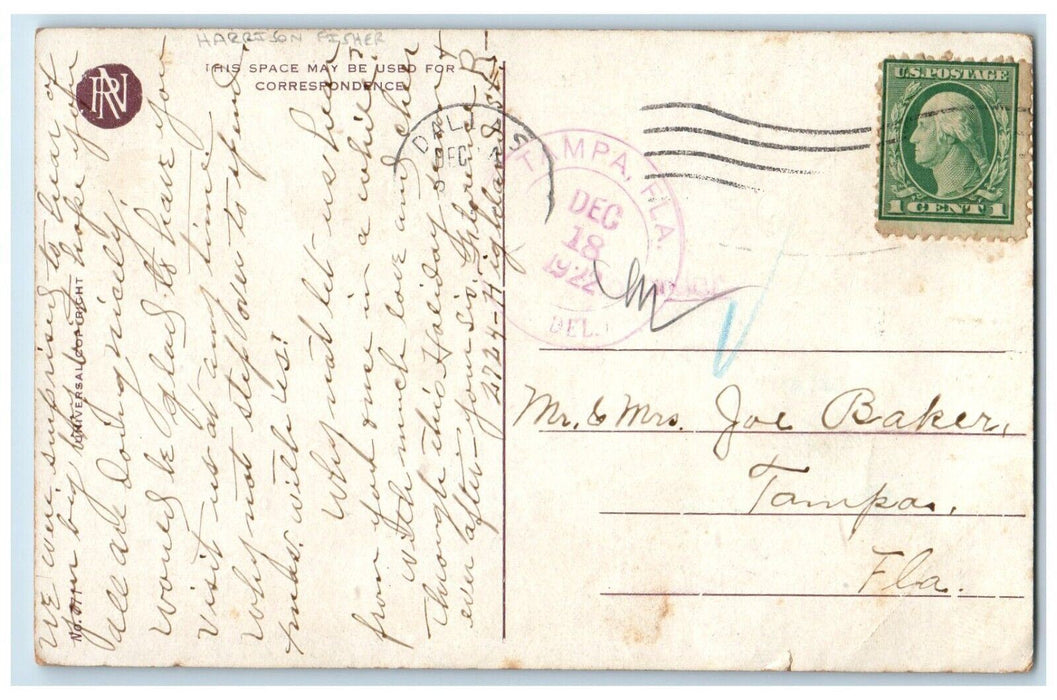 HARRISON FISHER
THIS SPACE MAY BE USED FOR
CORRESPONDENCE
RN
UNIVERSAL COPYRIGHT
We were surprised to hear of
your big hope you
all are doing nicely.
Would be glad to have you
visit us at any time.
Why not step down to spend
Xmas. with us!
Why not let us hear
from you once in a while?
With much love and cheer
through this Holiday season &
ever after - your sis.
4724 - Highland St.
DALLAS
DEC
TAMPA, FLA.
DEC
18
1922
DEL.
U.S. POSTAGE
1 CENT 1
Mr. & Mrs. Joe Baker,
Tampa,
Fla.